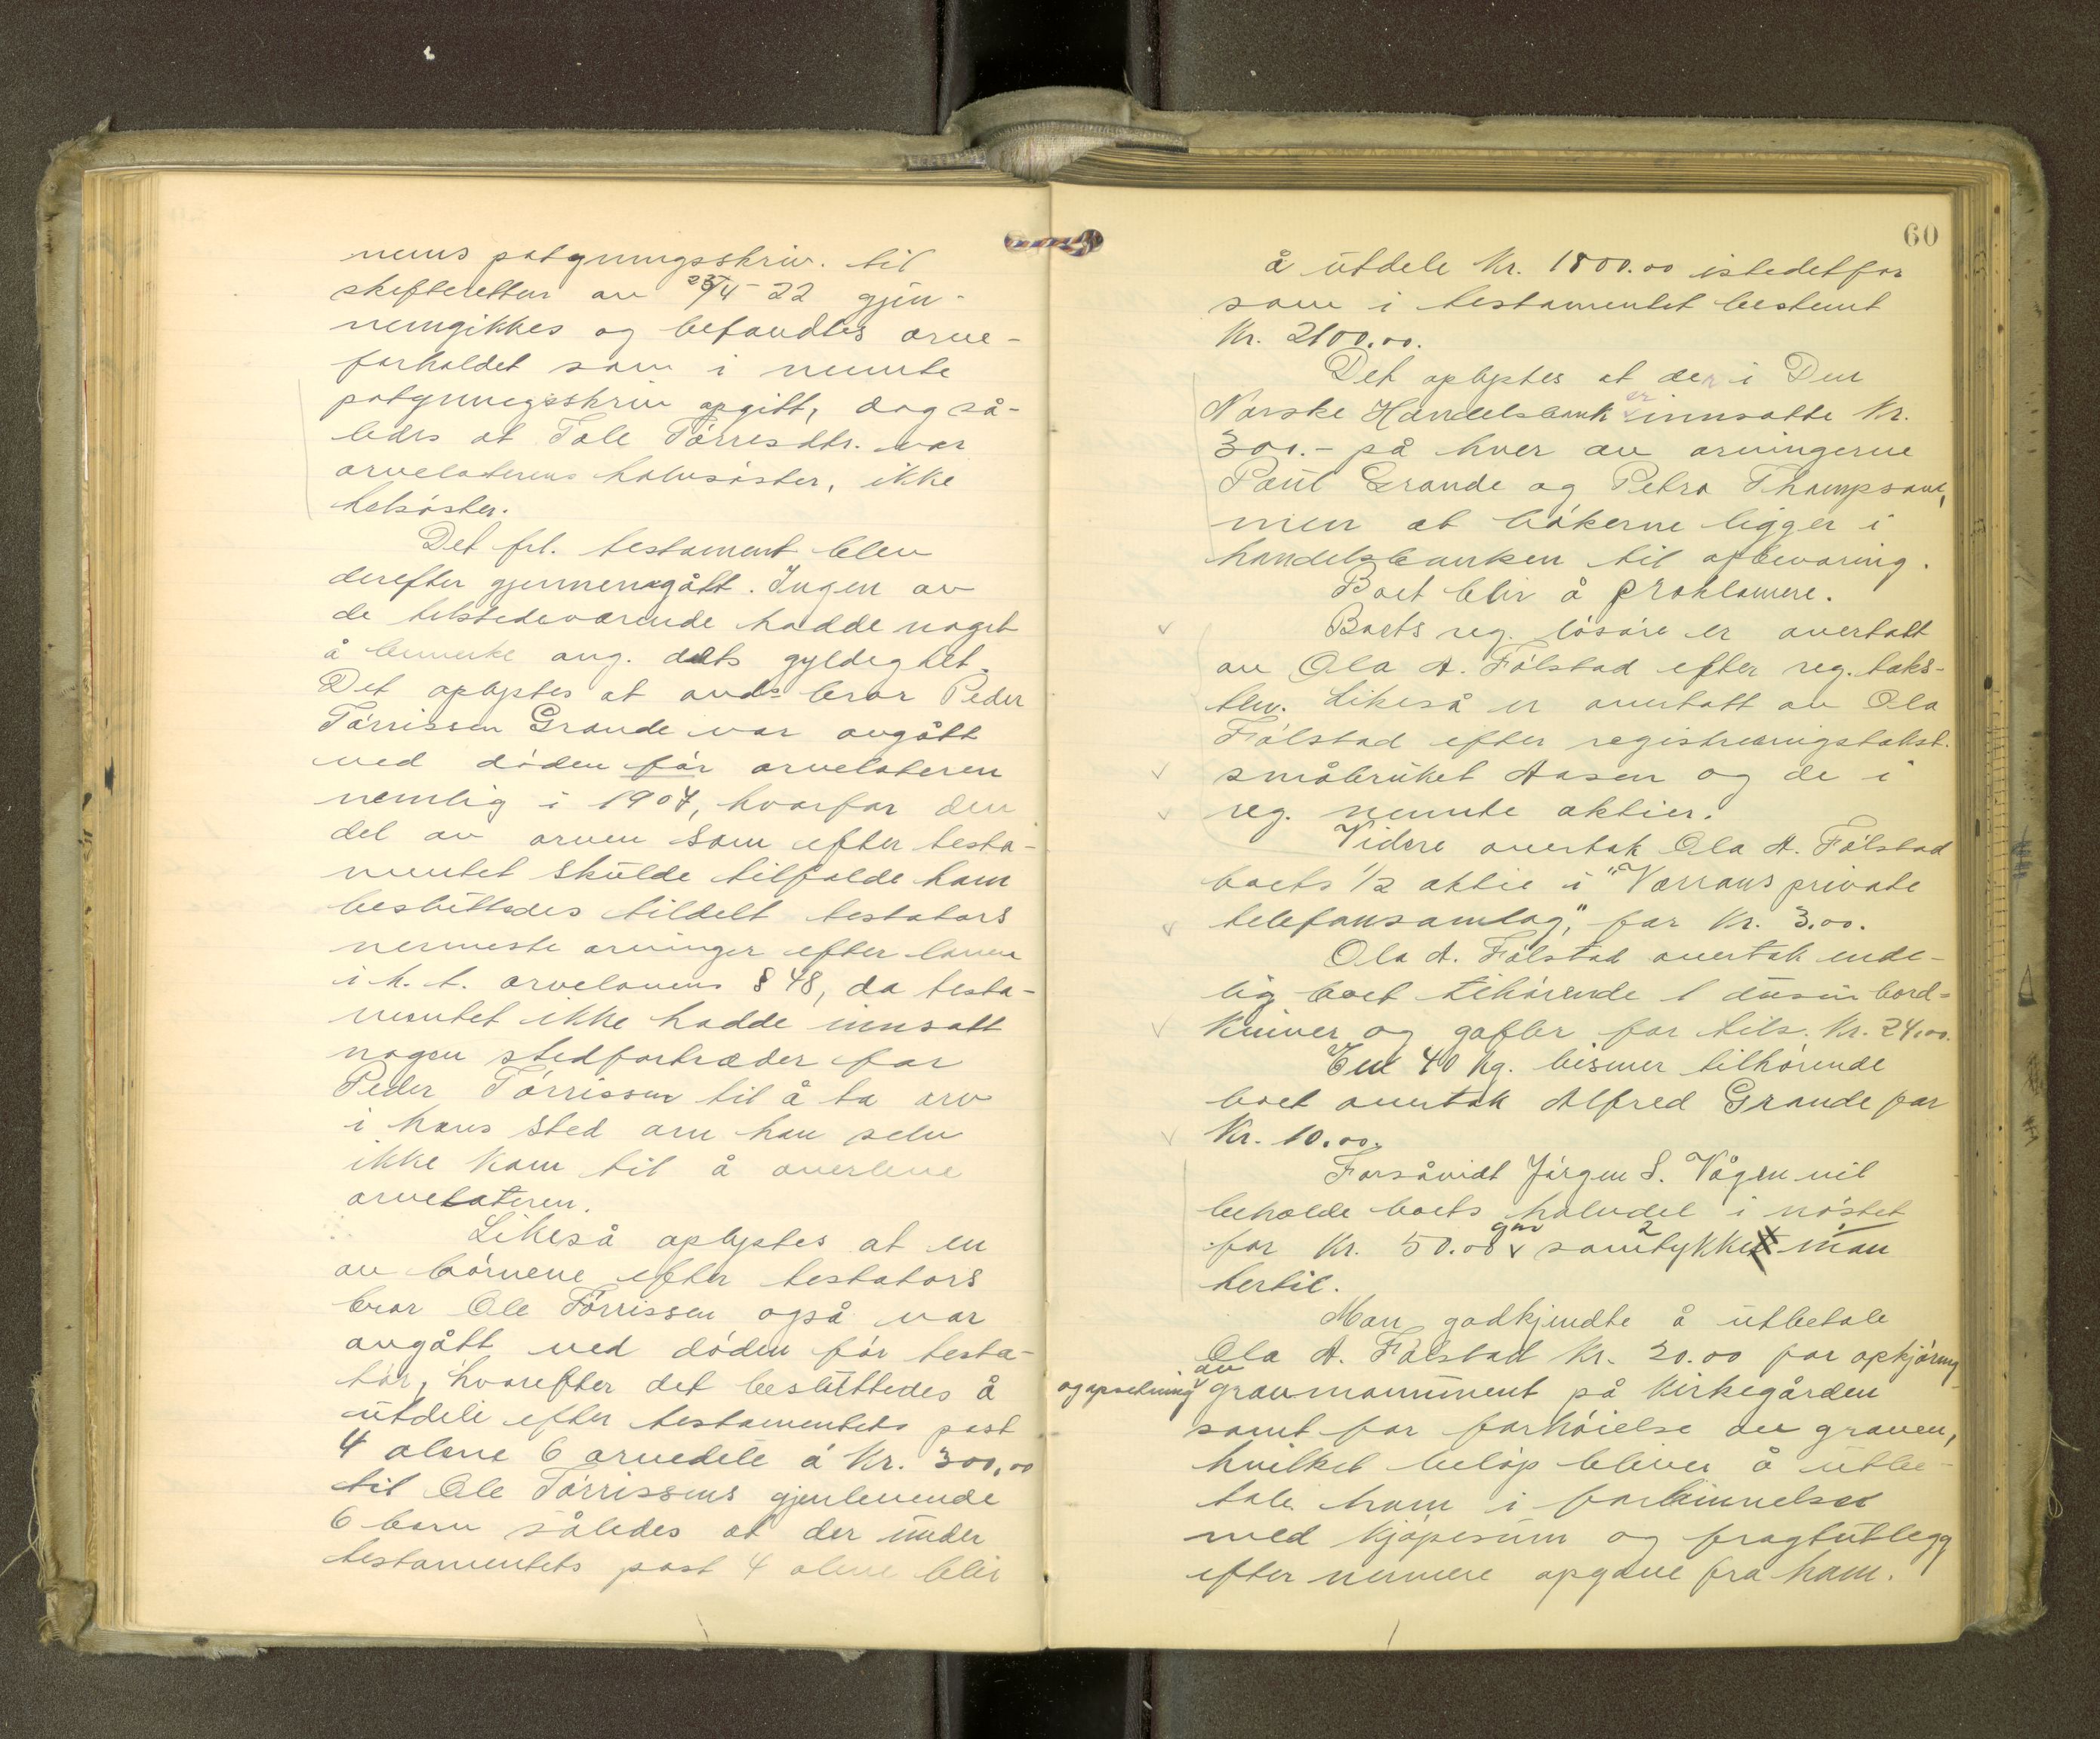 nens påtgningsskriv. til
skifteretten av 25/4-22 gjen-
nemgikkes og befandtes arve-
forholdet som i nevnte
påtgningsskriv opgitt, dog så-
ledes at Tale Tørresdtr. var
arvelaterens halvsøster, ikke
helsøster.
Det frl. testament blev
derefter gjennemgått. Ingen av
de tilstedeværende hadde noget
å bemerke ang. dets gyldighet.
Det oplystes at avds bror Peder
Tørrissen Grande var avgått
ved døden før arvelateren
nemlig i 1907, hvorfor den
del av arven som efter testa-
mentet skulde tilfalde ham
besluttedes tildelt testators
nermeste arvinger efter loven
i h. t. arvelovens § 48, da testa-
mentet ikke hadde innsatt
nogen stedfortræder for
Peder Tørrissen til å ta arv
i hans sted om han selv
ikke kom til å overleve
arvelateren.
Likeså oplystes at en
av børnene efter testators
bror Ole Tørrissen også var
avgått ved døden før testa-
tor, hvorefter det besluttedes å
utdele efter testamentets post
4 alene 6 arvedele á Kr. 300,00
til Ole Tørrissens gjenlevende
6 barn således at der under
testamentets post 4 alene blir
60
å utdele Kr. 1800.00 istedetfor
som i testamentet bestemt
Kr. 2100.00.
Det oplystes at der i Den
Norske Handelsbank er innsatte Kr.
300.- på hver av arvingerne
Paul Grande og Petra Thampsone,
men at bøkerne ligger i
handelsbanken til opbevaring.
Boet blir å proklamere.
Boets reg. løsøre er overtatt
av Ola A. Følstad efter reg. taks-
ten. Likeså er overtatt av Ola
Følstad efter registreringstakst.
småbruket Aasen og de i
reg. nevnte aktier.
Videre overtok Ola A. Følstad
boets 1/2 aktie i "Verrans private
telefonsamlag", for Kr. 3.00.
Ola A. Følstad overtok ende-
lig boet tilhørende 1 dusin bord-
kniver og gafler for tils. Kr. 24.00.
En 40 Kg. bismer tilhørende
boet overtok Alfred Grande for
Kr. 10.00.
Forsåvidt Jørgen S. Vågen vil
beholde boets halvdel i nøstet
for Kr. 50.00 gav samtykke man
hertil.
Man godkjendte å utbetale
Ola A. Følstad Kr. 20.00 for opkjøring
og opsetning av gravmonument på kirkegården
samt for forhøielse av graven,
hvilket beløp bliver å utbe-
tale ham i forbinnelse
med kjøpesum og fragtutlegg
efter nermere opgave fra ham.